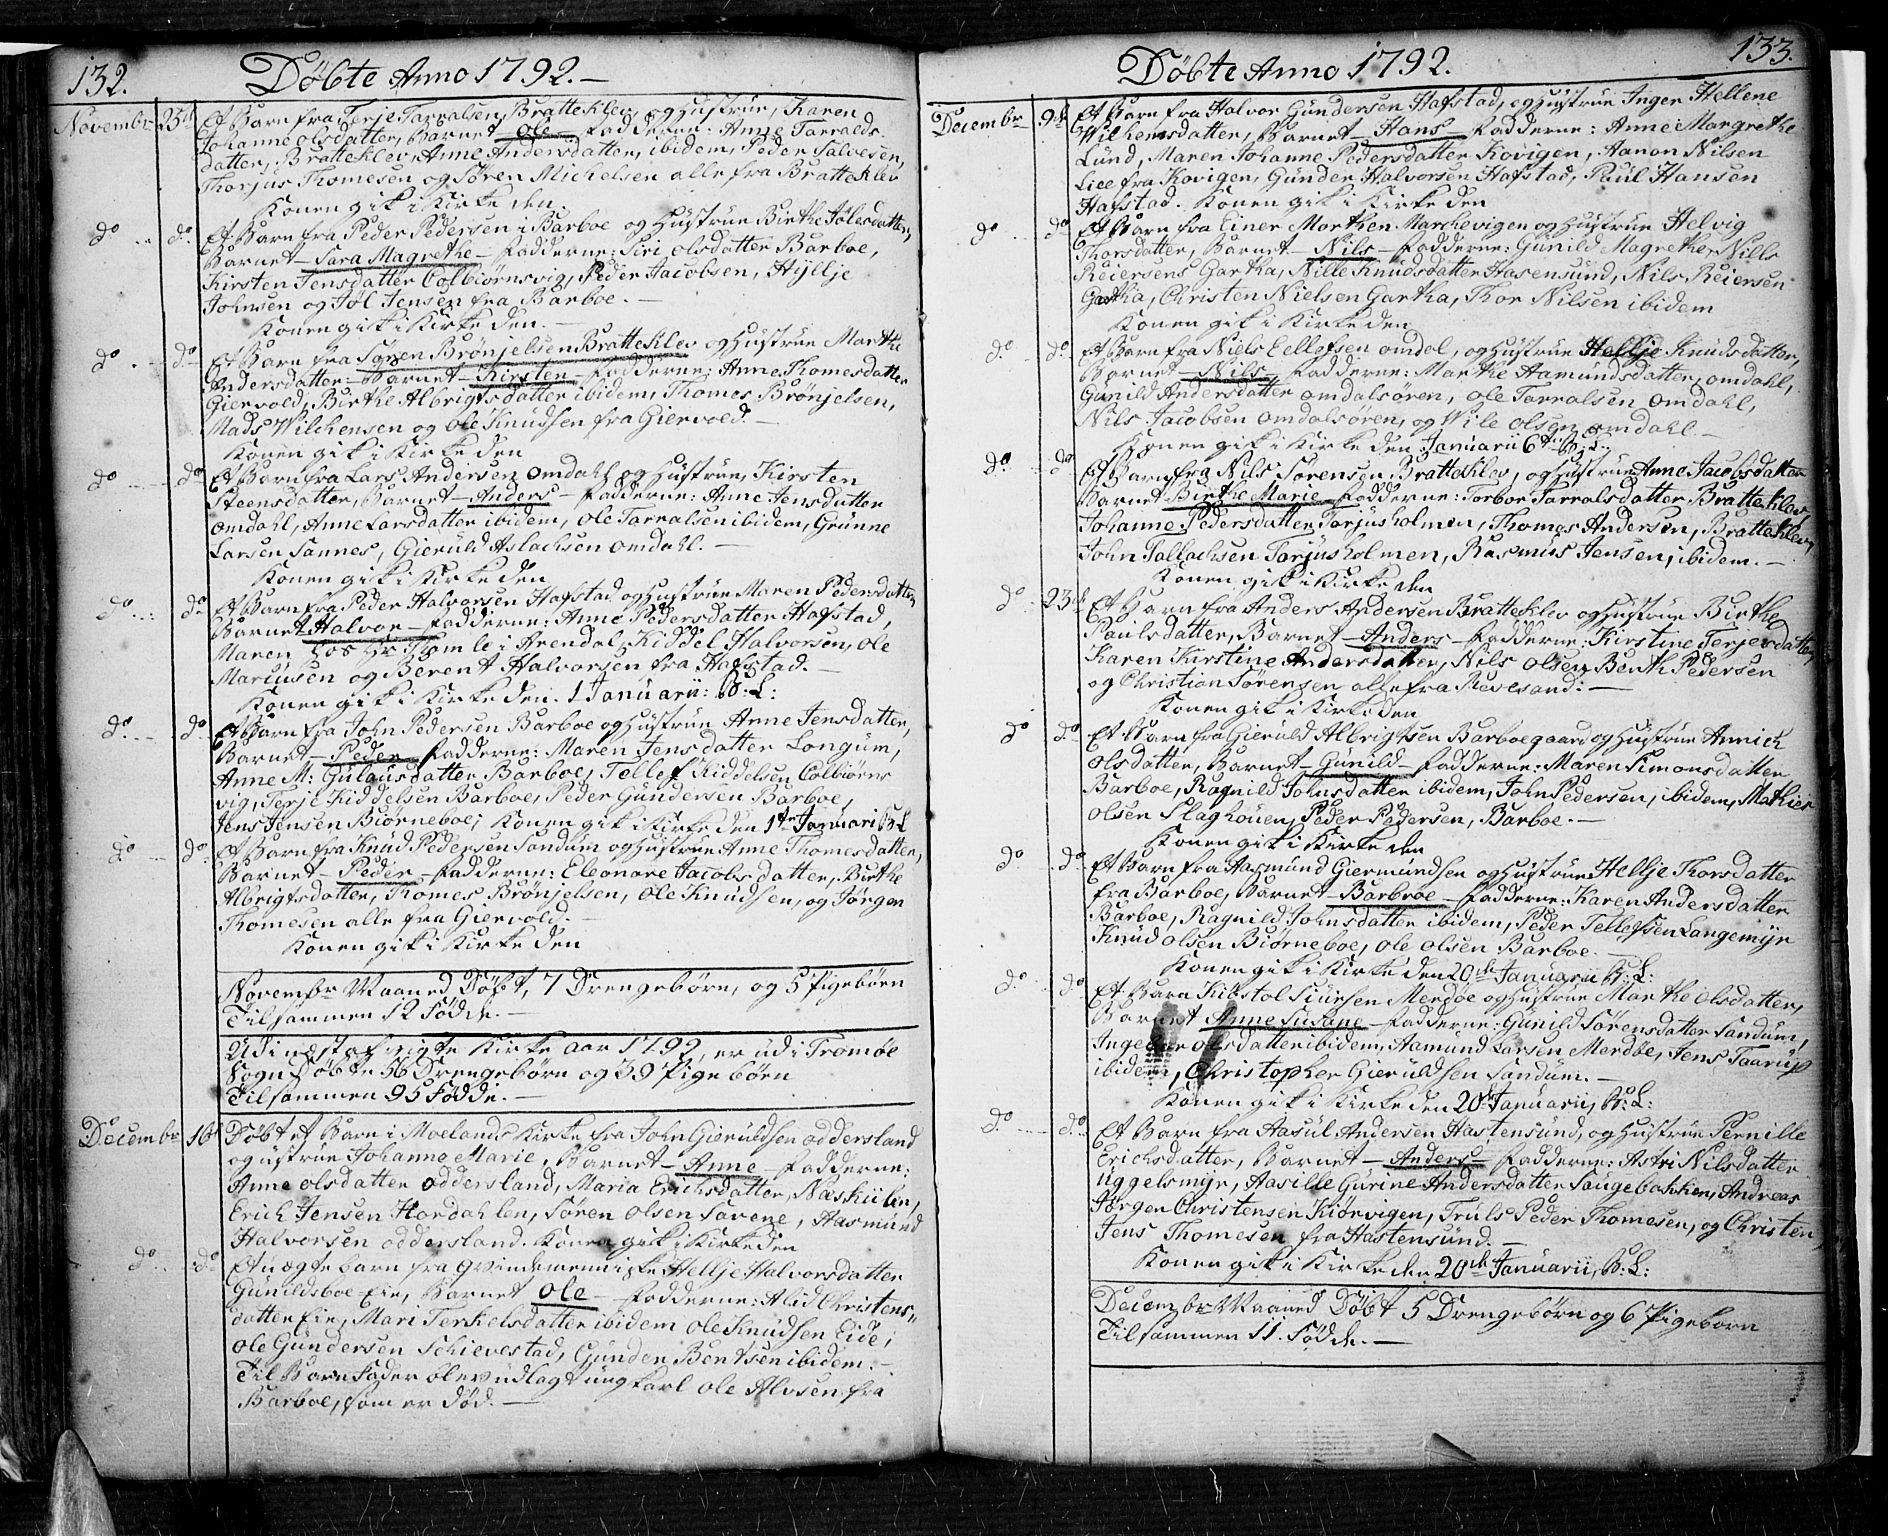 132.
Døbte Anno 1792.
Novembr 25de Et Barn fra Terje Tarralsen, Bratteklev, og Hustrue, Karen
Johanne olsdatter, Barnet Ole Fadderne: Anne Tarralds-
datter, Bratteklev, Anne Andersdatter, ibidem, Peder Salvesen,
Thorjus Thomesen og Søren Michelsen alle fra Bratteklev
Konen gik i Kirke den.
do do Et Barn fra Peder Pedersen i Barboe og Hustrue Birthe Jølesdatter,
Barnet Sara Magrethe Fadderne: Siri olsdatter Barboe,
Kirsten Jensdatter Colbiørnsvig, Peder Jacobsen, Hyllje
Johnsen og Jøl Jensen fra Barboe.
Konen gik i Kirke den.
do do Et Barn fra Søren Brønjelsen Bratteklev og Hustrue Marthe
Andersdatter Barnet Kirsten Fadderne: Anne Thomesdatter
Giervold, Birthe Albrigtsdatter ibidem, Thomes Brønjelsen,
Mads Wilchensen og ole Knudsen fra Giervold.
Konen gik i Kirke den
do do Et Barn fra Lars Andersen omdahl og Hustrue, Kirsten
Steensdatter, Barnet Anders Fadderne: Anne Jensdatter
omdahl, Anne Larsdatter ibidem, ole Tarralsen ibidem, Grunne
Larsen Sannes, Gieruld Aslachsen omdahl.
Konen gik i Kirke den
do do Et Barn fra Peder Halvorsen Hafstad og Hustrue Maren Pedersdatter
Barnet Halvor Fadderne: Anne Pedersdatter Hafstad,
Maren hos Hr Thomle i Arendal, Kiddel Halvorsen, ole
Mariusen og Berent Halvorsen fra Hafstad.
Konen gik i Kirke den. 1 Januarii: B: L:
do do Et Barn fra John Pedersen Barboe og Hustrue Anne Jensdatter,
Barnet Peder Fadderne: Maren Jensdatter Longum,
Anne M: Gulausdatter Barboe, Tellef Kiddelsen Colbiørns
vig, Terje Kiddelsen Barboe, Peder Gundersen Barboe,
Jens Jensen Biørneboe; Konen gik i Kirke den 1te Januari B: L
do do Et Barn fra Knud Pedersen Sandum og Hustrue Anne Thomesdatter,
Barnet Peder Fadderne: Eleonore Jacobsdatter, Birthe
Albrigtsdatter, Thomes Brønjelsen, ole Knudsen, og Jørgen
Thomesen alle fra Giervold.
Konen gik i Kirke den
Novembr Maaned Døbt, 7 Drengebørn, og 5 Pigebørn
Tilsammen 12 Fødde.
Udi næstafvigte Kirke aar 1792, er udi Tromøe
Sogn Døbte 56 Drengebørn og 39 Pigebørn
Tilsammen 95 Fødde.
Decembr Døbt et Barn i Moelands Kirke fra John Gieruldsen oddersland
og ustrue Johanne Marie, Barnet Anne Fadderne:
Anne olsdatter oddersland, Maria Erichsdatter, Næskilen,
Erich Jensen Hordahlen, Søren olsen Sørene, Aasmund
Halvorsen oddersland. Konen gik i Kirke den
do do Et uægte barn fra Qvindemennisket Hellje Halvorsdatter
Gunildsboe Eie, Barnet Ole Fadderne: Alid Christens-
datter Eie, Mari Terkelsdatter ibidem ole Knudsen Eide,
ole Gundersen Schievestad, Gunder Bentsen ibidem.
Til Barn Fader blev udlagt ungkarl ole Alvsen fra
Barboe, som er død.
133.
Døbte Anno 1792.
Decembr 9de Et Barn fra Halvor Gundersen Hafstad, og Hustrue Inger Hellene
Wilhemsdatter, Barnet Hans Fadderne: Anne Margrethe
Lund, Maren Johanne Pedersdatter Kovigen, Aanon Nilsen
Liee fra Kovigen, Gunder Halvorsen Hafstad, Paul Hansen
Hafstad. Konen gik i Kirke den
do do Et Barn fra Einer Morthen Marchevigen og Hustrue Helvig
Thorsdatter, Barnet Nils Fadderne: Gunild Magrethe, Nills
Reiersens Gartha, Nille Knudsdatter Hasensund, Nils Reiersen
Gartha, Christen Nielsen Gartha, Thor Nilsen ibidem
Konen gik i Kirke den
do do Et Barn fra Niels Eellefsen omdal, og Hustrue Hellje Knudsdatter,
Barnet Nils Fadderne: Marthe Aamundsdatter, omdahl,
Gunild Andersdatter omdalsøren, ole Tarralsen omdahl,
Nils Jacobsen omdalsøren, og Wile olsen omdahl
Konen gik i Kirke den Januarii 6te B: L:
do do Et Barn fra Nils Sørensen Bratteklev, og Hustrue Anne Jacobsdatter
Barnet Birthe Marie Fadderne: Torbor Tarralsdatter Bratteklev
Johanne Pedersdatter Torjusholmen, Thomes Andersen, Bratteklev,
John Tallachsen Torjusholmen, Rasmus Jensen, ibidem.
Konen gik i Kirke den
do 23de Et Barn fra Anders Andersen Bratteklev og Hustrue Birthe
Paulsdatter, Barnet Anders Fadderne: Kirstine Terjesdatter,
Karen Kirstine Andersdatter, Nils olsen, Benth Pedersen
og Christian Sørensen alle fra Revesand:
Konen gik i Kirke den
do do Et Barn fra Gieruld Albrigtsen Barboegaard og Hustrue Annich
olsdatter, Barnet Gunild Fadderne: Maren Simonsdatter
Barboe, Ragnild Johnsdatter ibidem, John Pedersen, ibidem, Mathies
olsen Flaghouen, Peder Pedersen, Barboe.
Konen gik i Kirke den
do do Et Barn fra Aasmund Giermundsen og Hustrue Hellje Thorsdatter
fra Barboe, Barnet Barbroe Fadderne: Karen Andersdatter
Barboe, Ragnild Johnsdatter ibidem, Peder Tellefsen Langemyr
Knud olsen Biørneboe, ole olsen Barboe
Konen gik i Kirke den 20de Januarii B: L:
do do Et Barn Kibstol Siursen Merdøe og Hustrue Marthe olsdatter,
Barnet Anne Susane Fadderne: Gunild Sørensdatter Sandum,
Ingebor olsdatter ibidem, Aamund Larsen Merdøe, Jens Taarup
ibidem, Christopher Gieruldsen Sandum.
Konen gik i Kirke den 20de Januarii, B: L:
do do Et Barn fra Aasul Andersen Hastensund, og Hustrue Pernille
Erichsdatter, Barnet Anders Fadderne: Astri Nilsdatter
Uggelsmyr, Aasille Gurine Andersdatter Saugebakken, Andreas
Jørgen Christensen Kiørvigen, Truls Peder Thomesen, og Christen
Jens Thomesen fra Hastensund.
Konen gik i Kirke den 20de Januarii, B: L:
Decembr Maaned Døbt 5 Drengebørn og 6 Pigeborn
Tilsammen 11. Fødde.